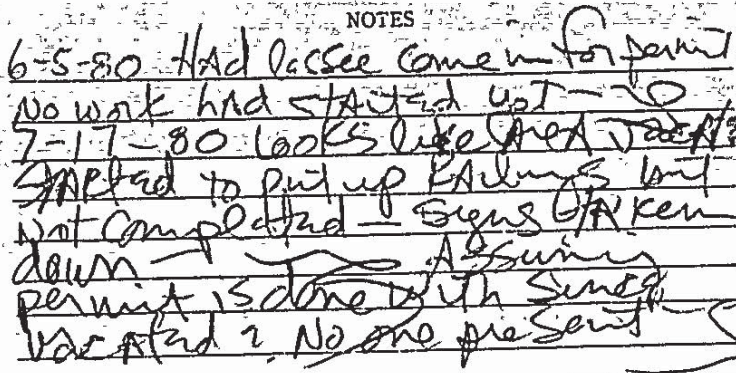 NOTES
6-5-80 Had lassee come in for permit
No work had started yet —
7-17-80 Looks like Area
Started to put up Railings but
not completed — Signs taken
down — Assuming
permit is done with since
vacated? No one present —